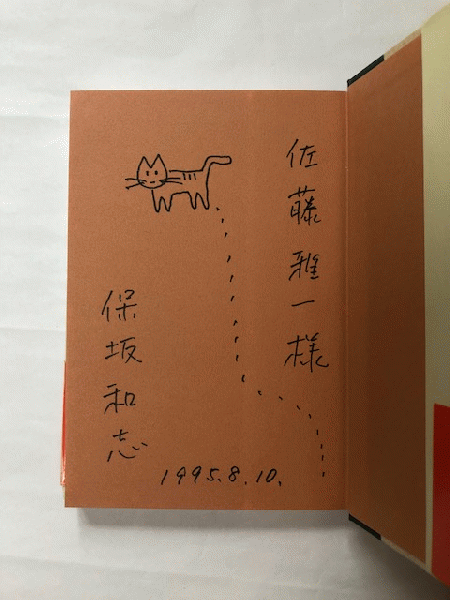 佐藤雅一様
保坂和志
1995.8.10.